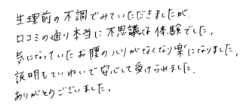 生理前の不調でみていただきましたが
口コミの通り本当に不思議な体験でした。
気になっていたお腹のハリがなくなり楽になりました。
説明もていねいで安心して受けられました。
ありがとうございました。